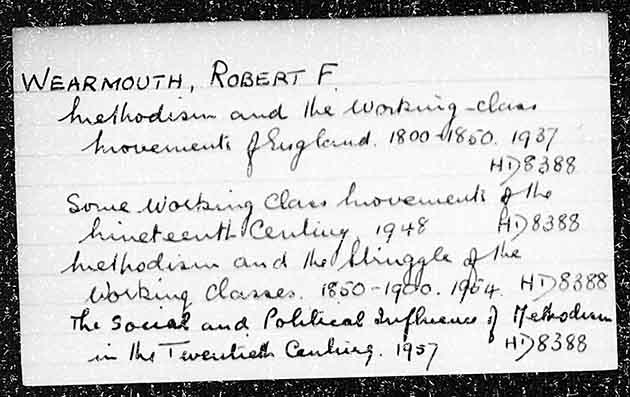 WEARMOUTH, ROBERT F.
Methodism and the Working-class
Movements of England. 1800-1850. 1937
HD8388
Some Working Class Movements of the
Nineteenth Century 1948 HD8388
Methodism and the Struggle of the
Working Classes. 1850-1900. 1954. HD8388
The Social and Political Influence of Methodism
in the Twentieth Century. 1957 HD8388